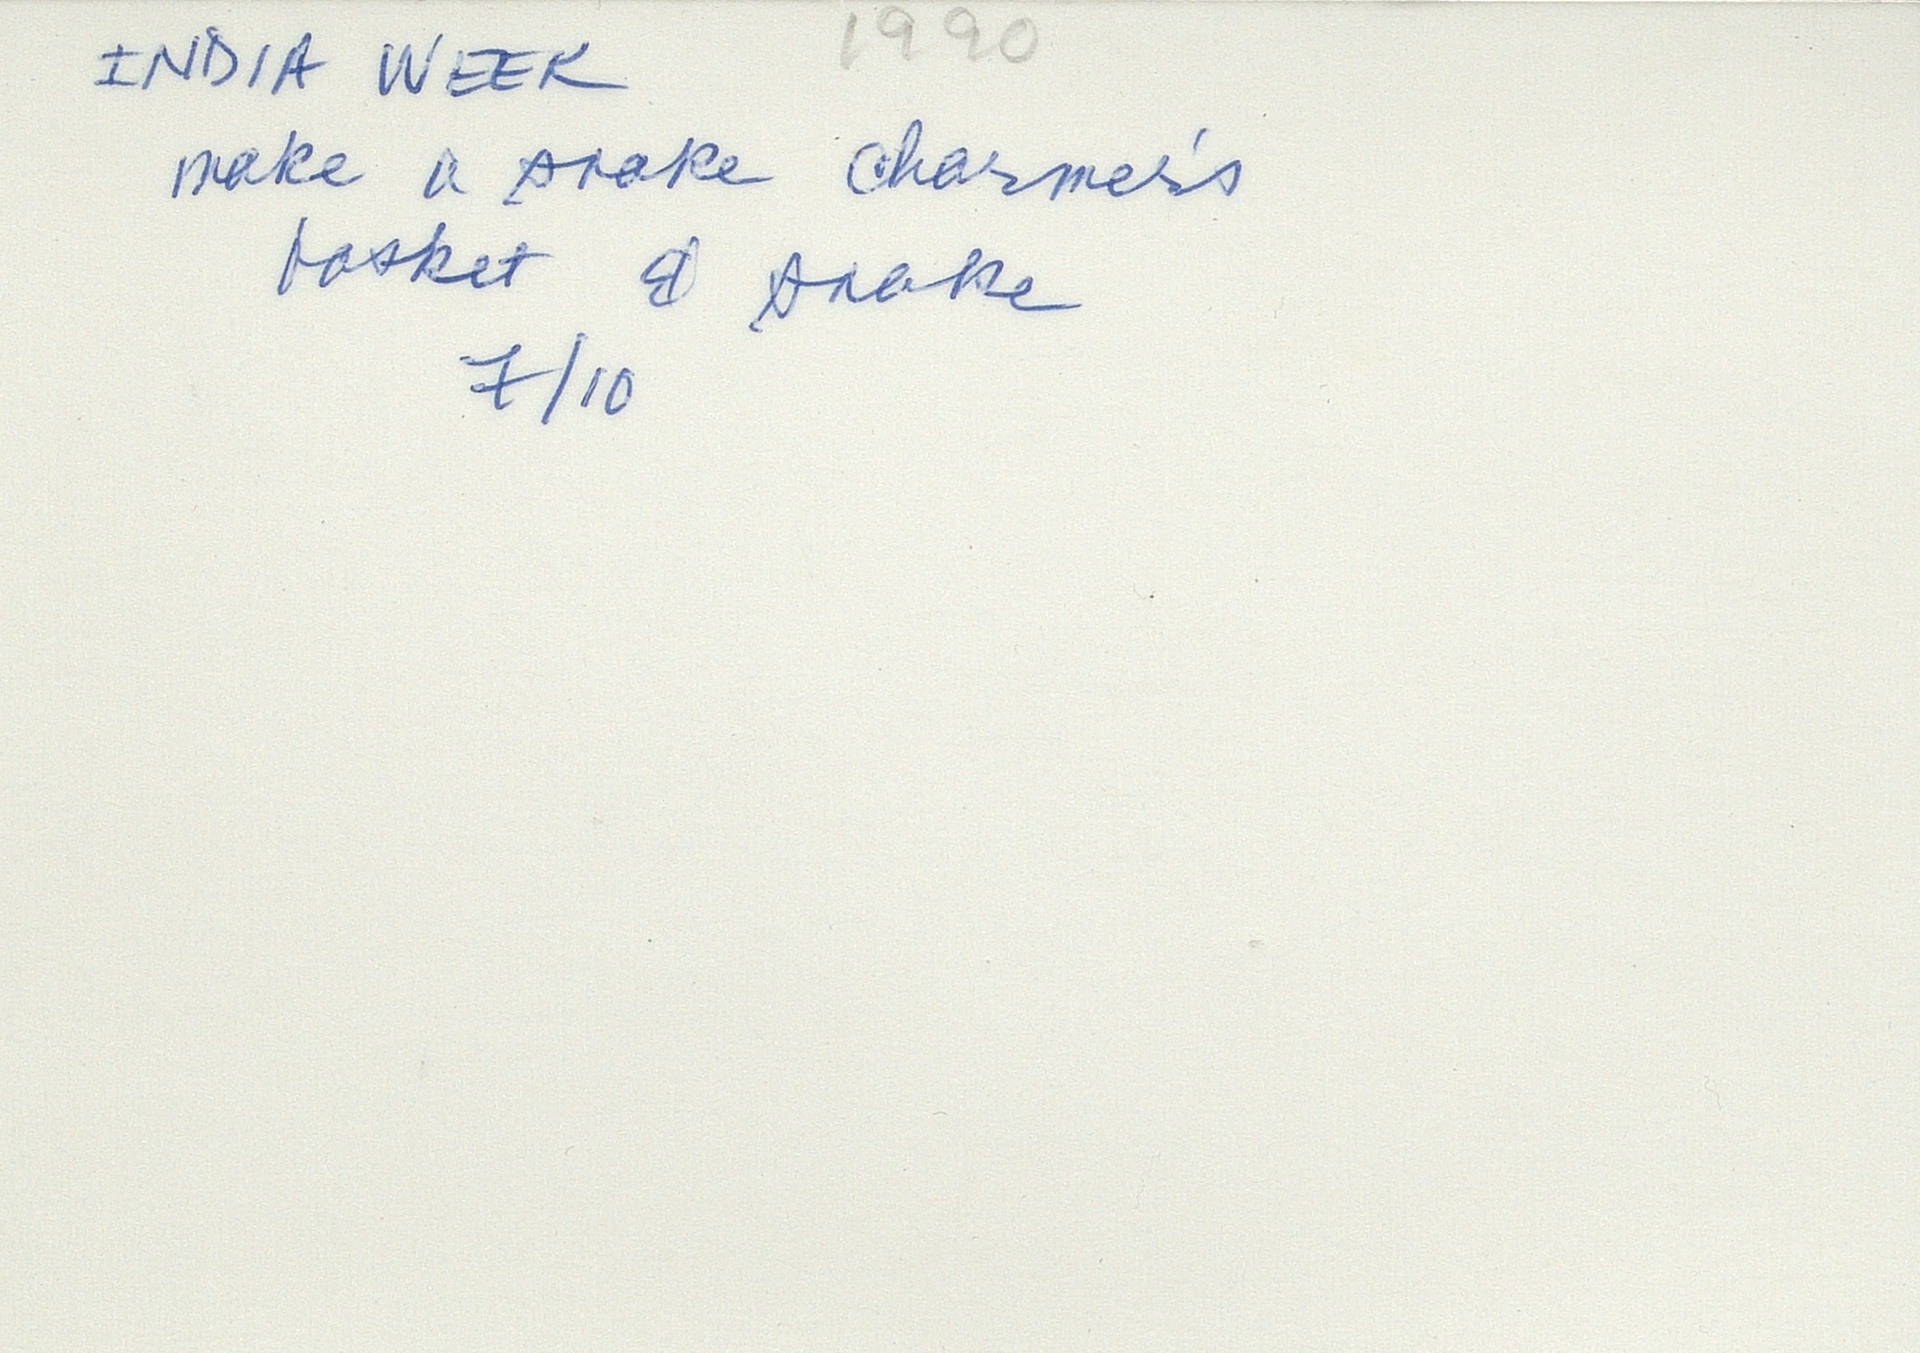 INDIA WEEK 1990
make a snake charmer's
basket & snake
7/10